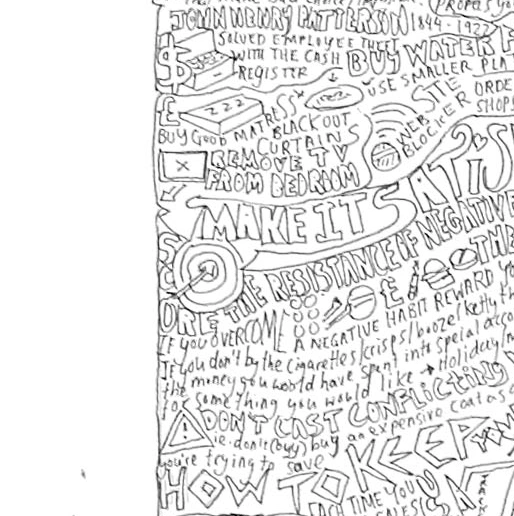 JOHN HENRY PATTERSON 1844-1922
SOLVED EMPLOYEE THEFT
WITH THE CASH
REGISTER
BUY WATER F
USE SMALLER PLAT
$
£
ZZZ
BUY GOOD MATRESS
BLACKOUT
CURTAINS
WEB SITE
BLOCKER
ORDE
SHOP
X
REMOVE TV
FROM BEDROOM
MAKE IT SATIS
THE RESISTANCE IF NEGATIVE
THE
£
IF YOU OVERCOME
A NEGATIVE HABIT REWARD YO
If you don't by the cigarettes/crisps/booze/ketty th
the money you would have spent into special acco
for something you would like → Holiday/m
DON'T CAST CONFLICTING V
ie. don't (buy) buy an expensive coat as
you're trying to save
HOW TO KEEP
EACH TIME YOU